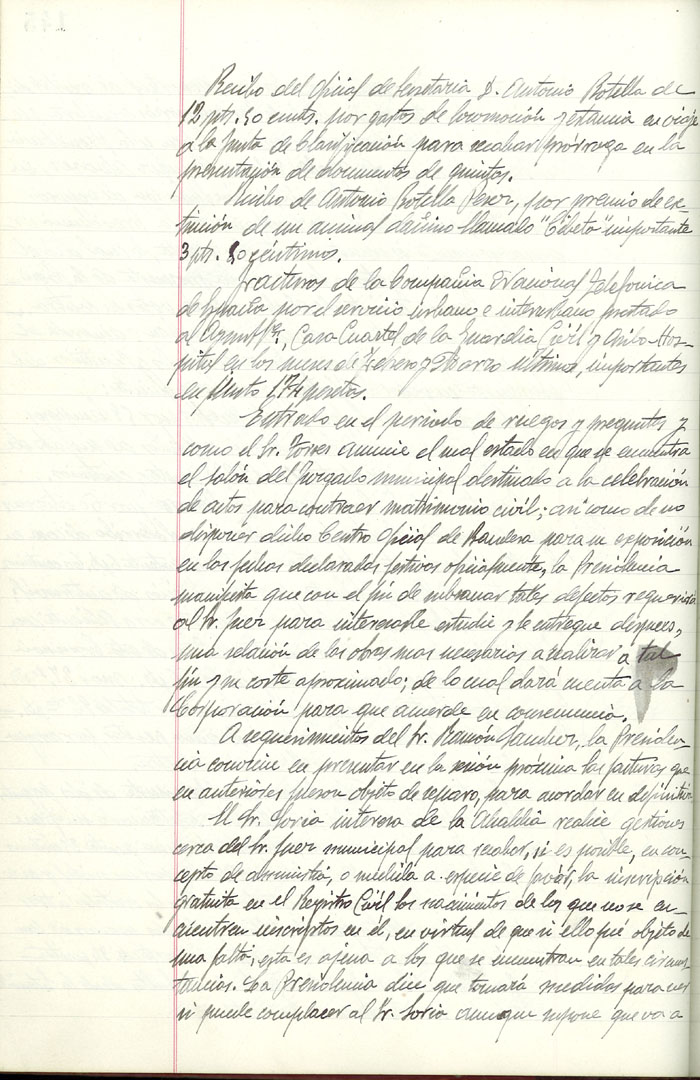 Recibo del Oficial de Secretaria D. Antonio Botella de
12 pts. 50 cnts. por gastos de locomoción y estancia en viaje
a la Junta de Clasificación para recabar prórroga en la
presentación de documentos de quintos.
Recibo de Antonio Botella Perez, por premio de ex-
tinción de un animal dañino llamado "Gibeto" importante
3 pts. 50 céntimos.
Facturas de la Compañia Nacional Telefonica
de España por el servicio urbano e interurbano prestado
al Ayuntº, Casa Cuartel de la Guardia Civil y Asilo Hos-
pital en los meses de Febrero y Marzo últimos, importantes
en junto 174 pesetas.
Entrado en el periodo de ruegos y preguntas y
como el Sr. Torres anuncie el mal estado en que se encuentra
el salón del Juzgado municipal destinado a la celebración
de actos para contraer matrimonio civil; asi como de no
disponer dicho Centro Oficial de Bandera para su exposición
en las fechas declaradas festivas oficialmente, la Presidencia
manifiesta que con el fin de subsanar tales defectos requerirá
al Sr. Juez para interesarle estudie y le entregue despues,
una relación de las obras mas necesarias a realizar a tal
fin y su coste aproximado; de la cual dará cuenta a la
Corporación para que acuerde en consecuencia.
A requerimientos del Sr. Ramón Sanchez, la Presiden-
cia conviene en presentar en la sesión próxima las facturas que
en anteriores fueron objeto de reparo, para acordar en definitiva.
El Sr. Soria interesa de la Alcaldia realice gestiones
cerca del Sr. Juez municipal para recabar, si es posible, en con-
cepto de amnistia, o medida a especie de favor, la inscripción
gratuita en el Registro Civil los nacimientos de los que no se en-
cuentren inscriptos en él, en virtud de que si ello fué objeto de
una falta, esta es ajena a los que se encuentran en tales circuns-
tancias. La Presidencia dice que tomará medidas para ver
si puede complacer al Sr. Soria aunque supone que va a